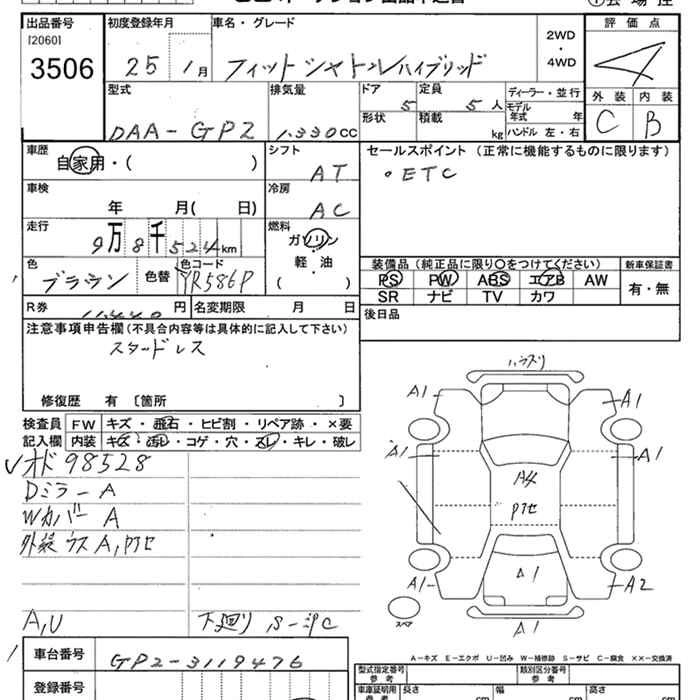 出品番号 初度登録年月 車名・グレード 2WD・4WD 評価点
[2060]
3506 25 1月 フィットシャトルハイブリッド 4
外装 内装
C B
型式 排気量 ドア 定員 ディーラー・並行
DAA-GP2 1.330CC 5 5人 モデル年式 年
形状 積載 kg ハンドル 左・右
車歴 シフト セールスポイント (正常に機能するものに限ります)
自家用・( ) AT 。ETC
車検 冷房
年 月( 日) AC
走行 燃料
9万8千524km ガソリン
軽・油
( )
色 色替 色コード
ブラウン YR586P
装備品 (純正品に限り○をつけてください) 新車保証書
PS PW ABS エアB AW 有・無
SR ナビ TV カワ
R券 円 名変期限 月 日
11,440
後日品
注意事項申告欄(不具合内容等は具体的に記入して下さい)
スタッドレス
修復歴 有 [箇所 ]
検査員記入欄
FW キズ・飛石・ヒビ割・リペア跡・×要
内装 キズ・汚れ・コゲ・穴・スレ・キレ・破レ
✓オド98528
Dミラー A
Wカバー A
外装 ウス A,Pアセ
A,U
下廻り S-中C
ハウスリ
A1
A1
A1
A1
A4
Pアセ
A1
A1
A2
スペア
A1
A-キズ E-エクボ U-凹み W-補修跡 S-サビ C-腐食 ××-交換済
車台番号
GP2-3119476
登録番号
型式指定番号 参考 類別区分番号 参考
車庫証明用 参考 長さ cm 幅 cm 高さ cm